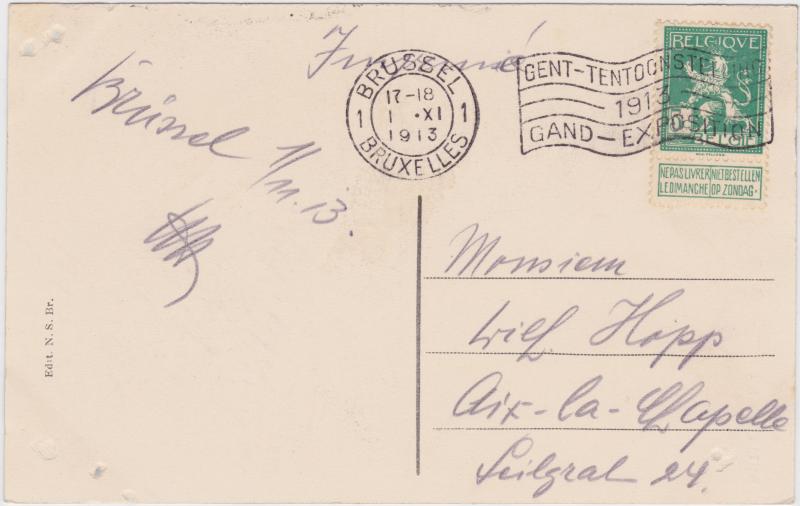 Imprimé
BRUSSEL
17-18
1 1 .XI 1
1913
BRUXELLES
GENT-TENTOONSTELLING
1913
GAND-EXPOSITION
BELGIQUE
BELGIE
NE PAS LIVRER NIET BESTELLEN
LE DIMANCHE OP ZONDAG.
Brüssel 1/11.13.
Monsieur
Willy Hopp
Aix-la-Chapelle
Seilgrab. 24.
Edit. N. S. Br.